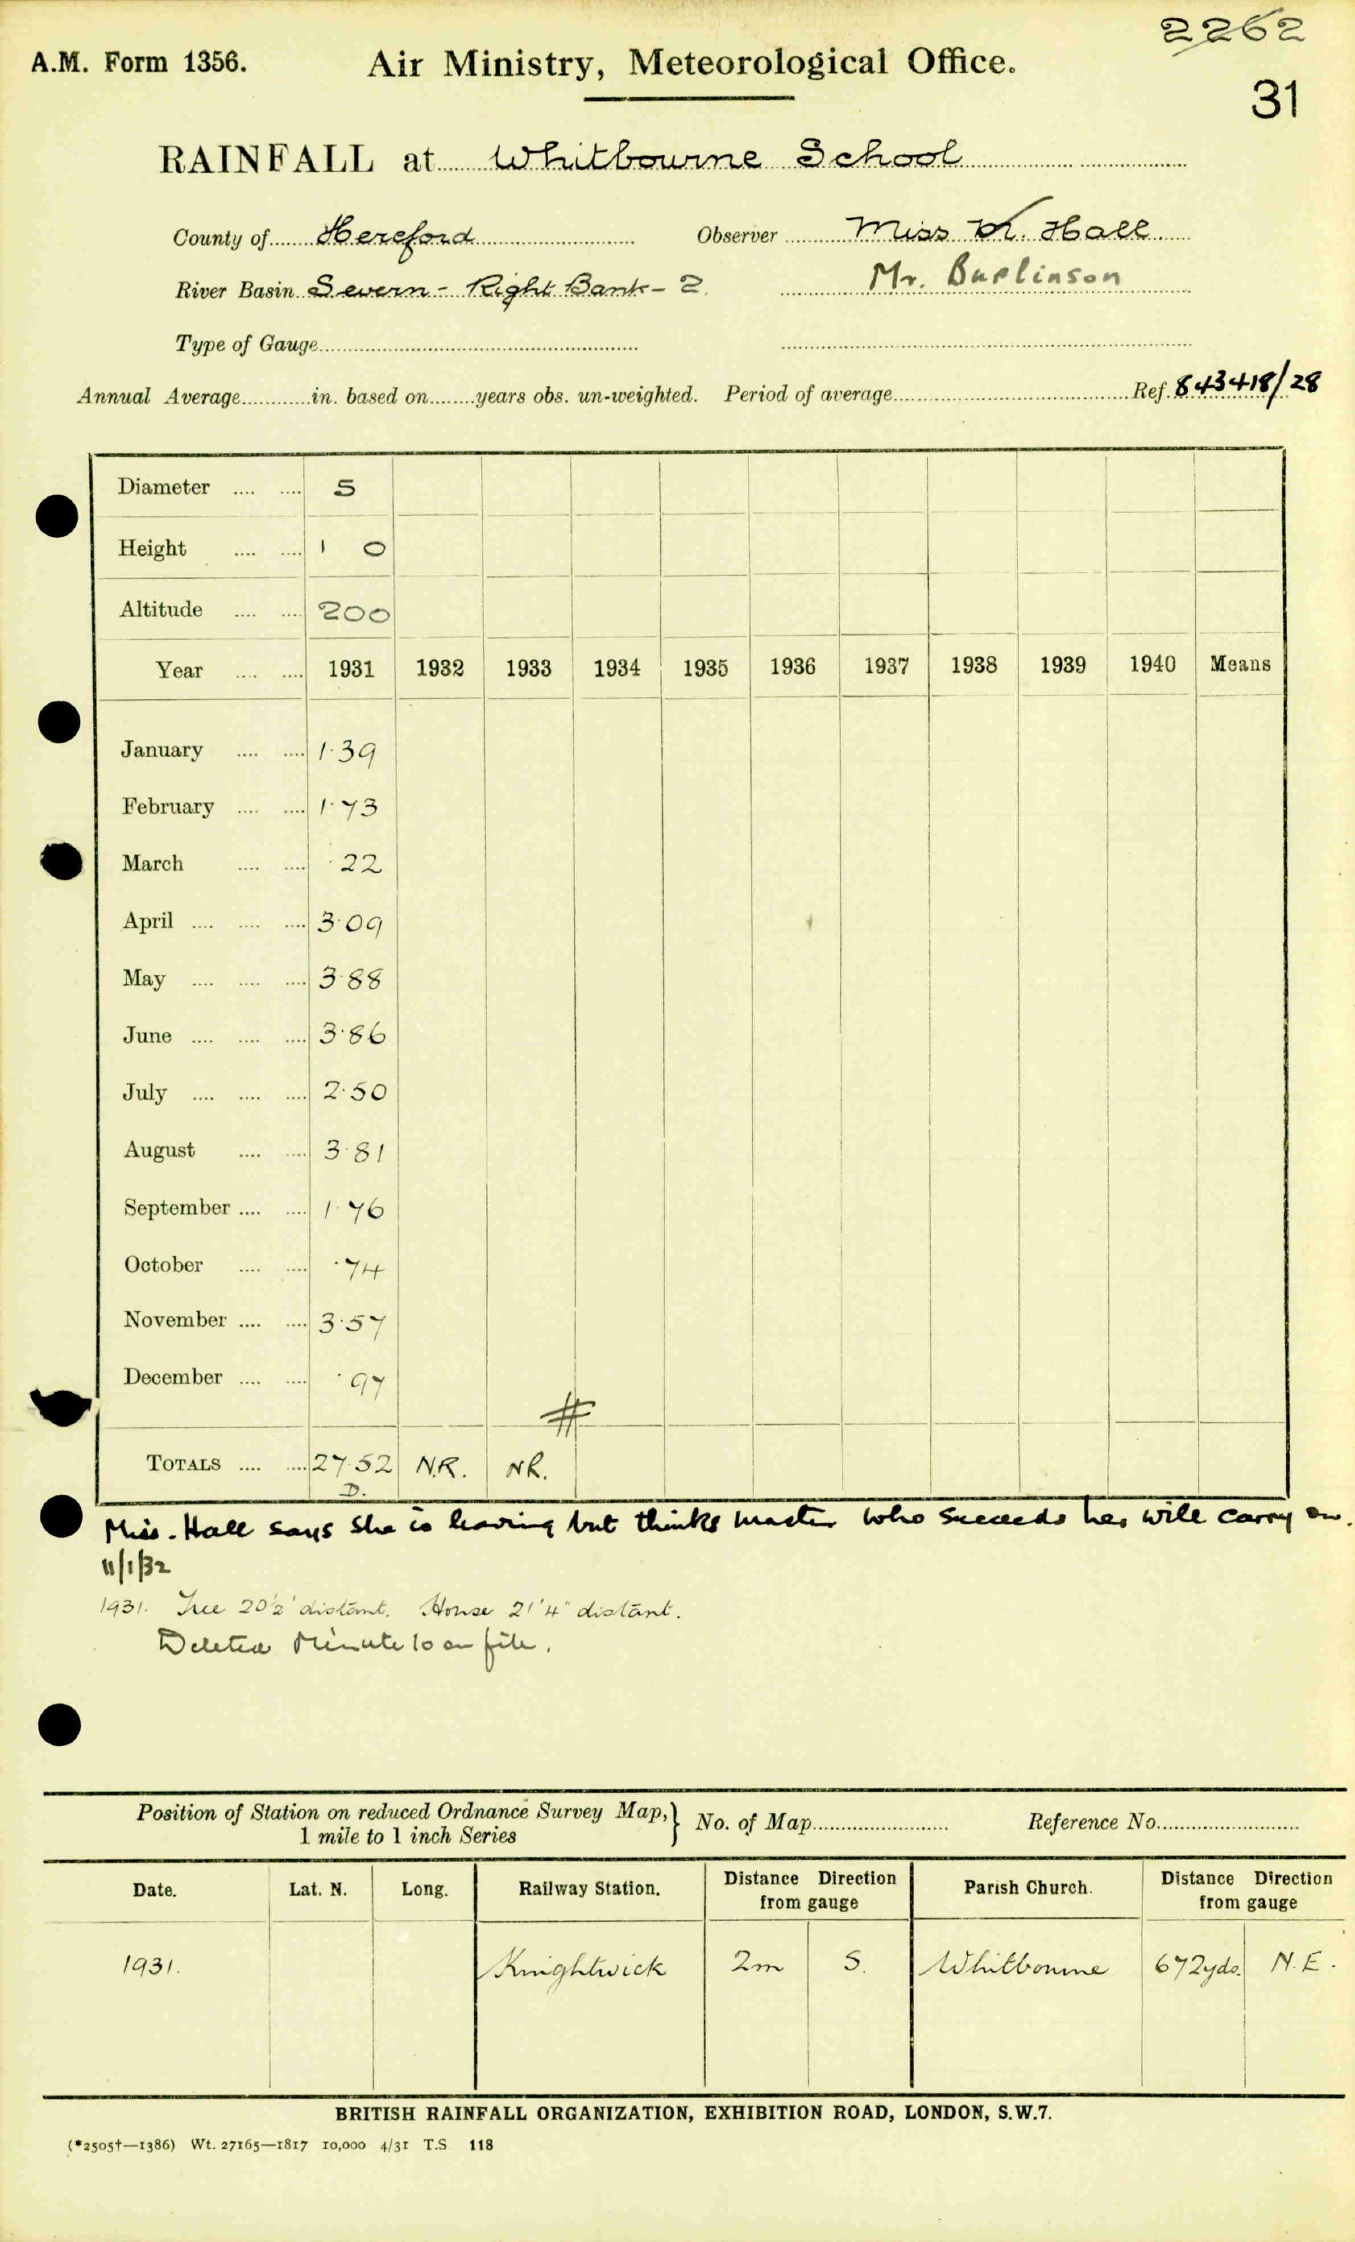 2262
A.M. Form 1356. Air Ministry, Meteorological Office.
31
RAINFALL at Whitbourne School
County of Hereford Observer Miss K. Hall
River Basin Severn - Right Bank - 2. Mr. Burlinson
Type of Gauge
Annual Average in. based on years obs. un-weighted. Period of average Ref. 843418/28
Diameter 5
Height 1 0
Altitude 200
Year 1931 1932 1933 1934 1935 1936 1937 1938 1939 1940 Means
January 1.39
February 1.73
March .22
April 3.09
May 3.88
June 3.86
July 2.50
August 3.81
September 1.76
October .74
November 3.57
December .97
#
TOTALS 27.52 N.R. N.R.
D.
Miss. Hall says she is leaving but thinks master who succeeds her will carry on.
11/1/32
1931. Tree 20½' distant. House 21'4" distant.
Deleted Minute 10 on file.
Position of Station on reduced Ordnance Survey Map, } No. of Map Reference No.
1 mile to 1 inch Series
Date. Lat. N. Long. Railway Station. Distance Direction from gauge Parish Church. Distance Direction from gauge
1931. Knightwick 2m S. Whitbourne 672yds. N.E.
BRITISH RAINFALL ORGANIZATION, EXHIBITION ROAD, LONDON, S.W.7.
(*2505†—1386) Wt. 27165—1817 10,000 4/31 T.S 118